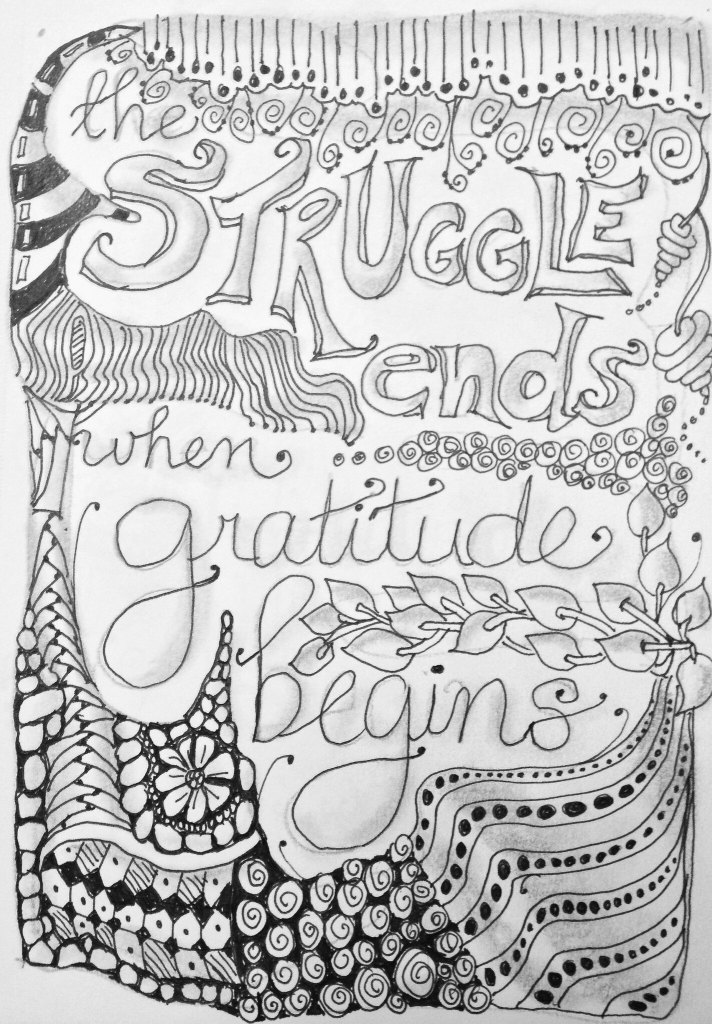 the
STRUGGLE
ends
when
gratitude
begins